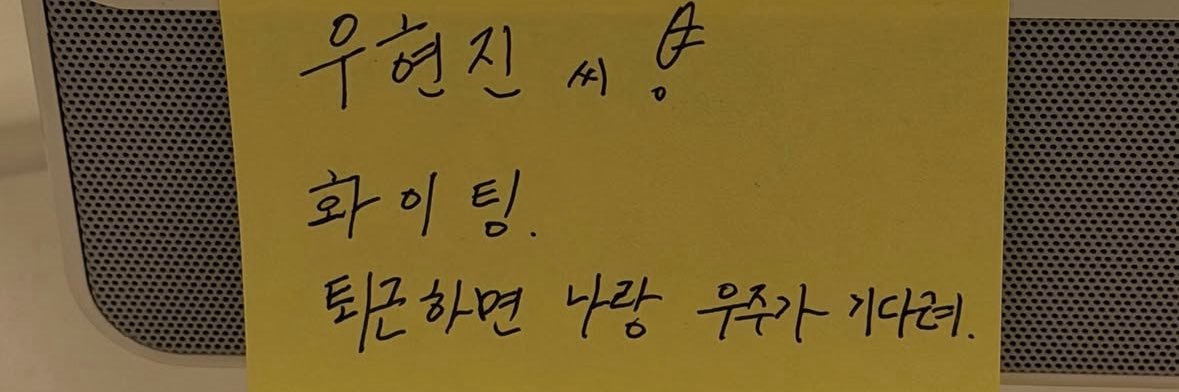 우현진 씨
화이팅.
퇴근하면 나랑 우주가 기다려.